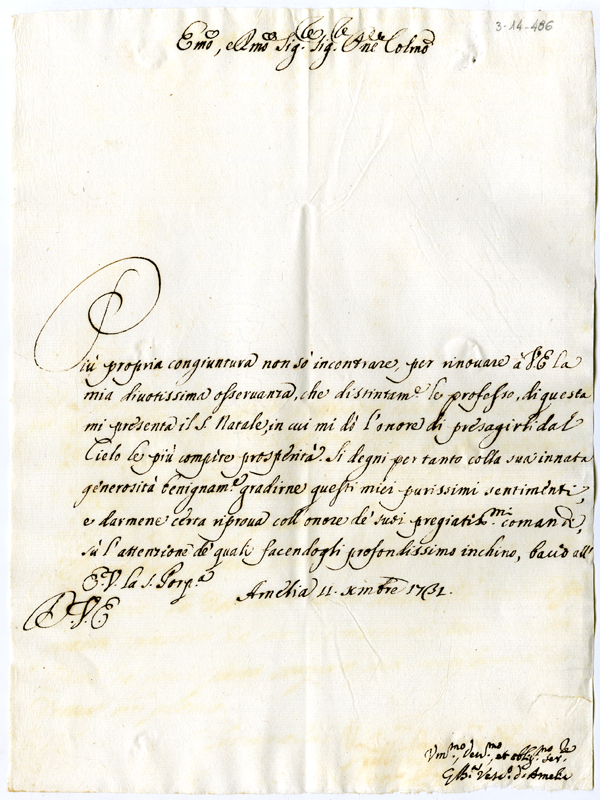 3-14-486
Emo, e Rmo Sig.re Sig.re Pne Colmo
Più propria congiuntura non sò incontrare, per rinovare à V.E la
mia divotissima osservanza, che distintam.e le professo, di questa
mi presenta il S. Natale, in cui mi dò l'onore di presagirli dal
Cielo le più compite prosperità. Si degni per tanto colla sua innata
generosità benignam.e gradirne questi miei purissimi sentimenti,
e darmene certa riprova coll'onore de' suoi pregiatis.mi comandi,
sù l'attenzione de' quali facendogli profondissimo inchino, bacio all'
E.V. la S. Porp.a
Amelia 11. Xmbre 1731.
D. V. E
Vm.mo, Dev.mo, et obblig.mo Ser.e
Vesc.o di Amelia